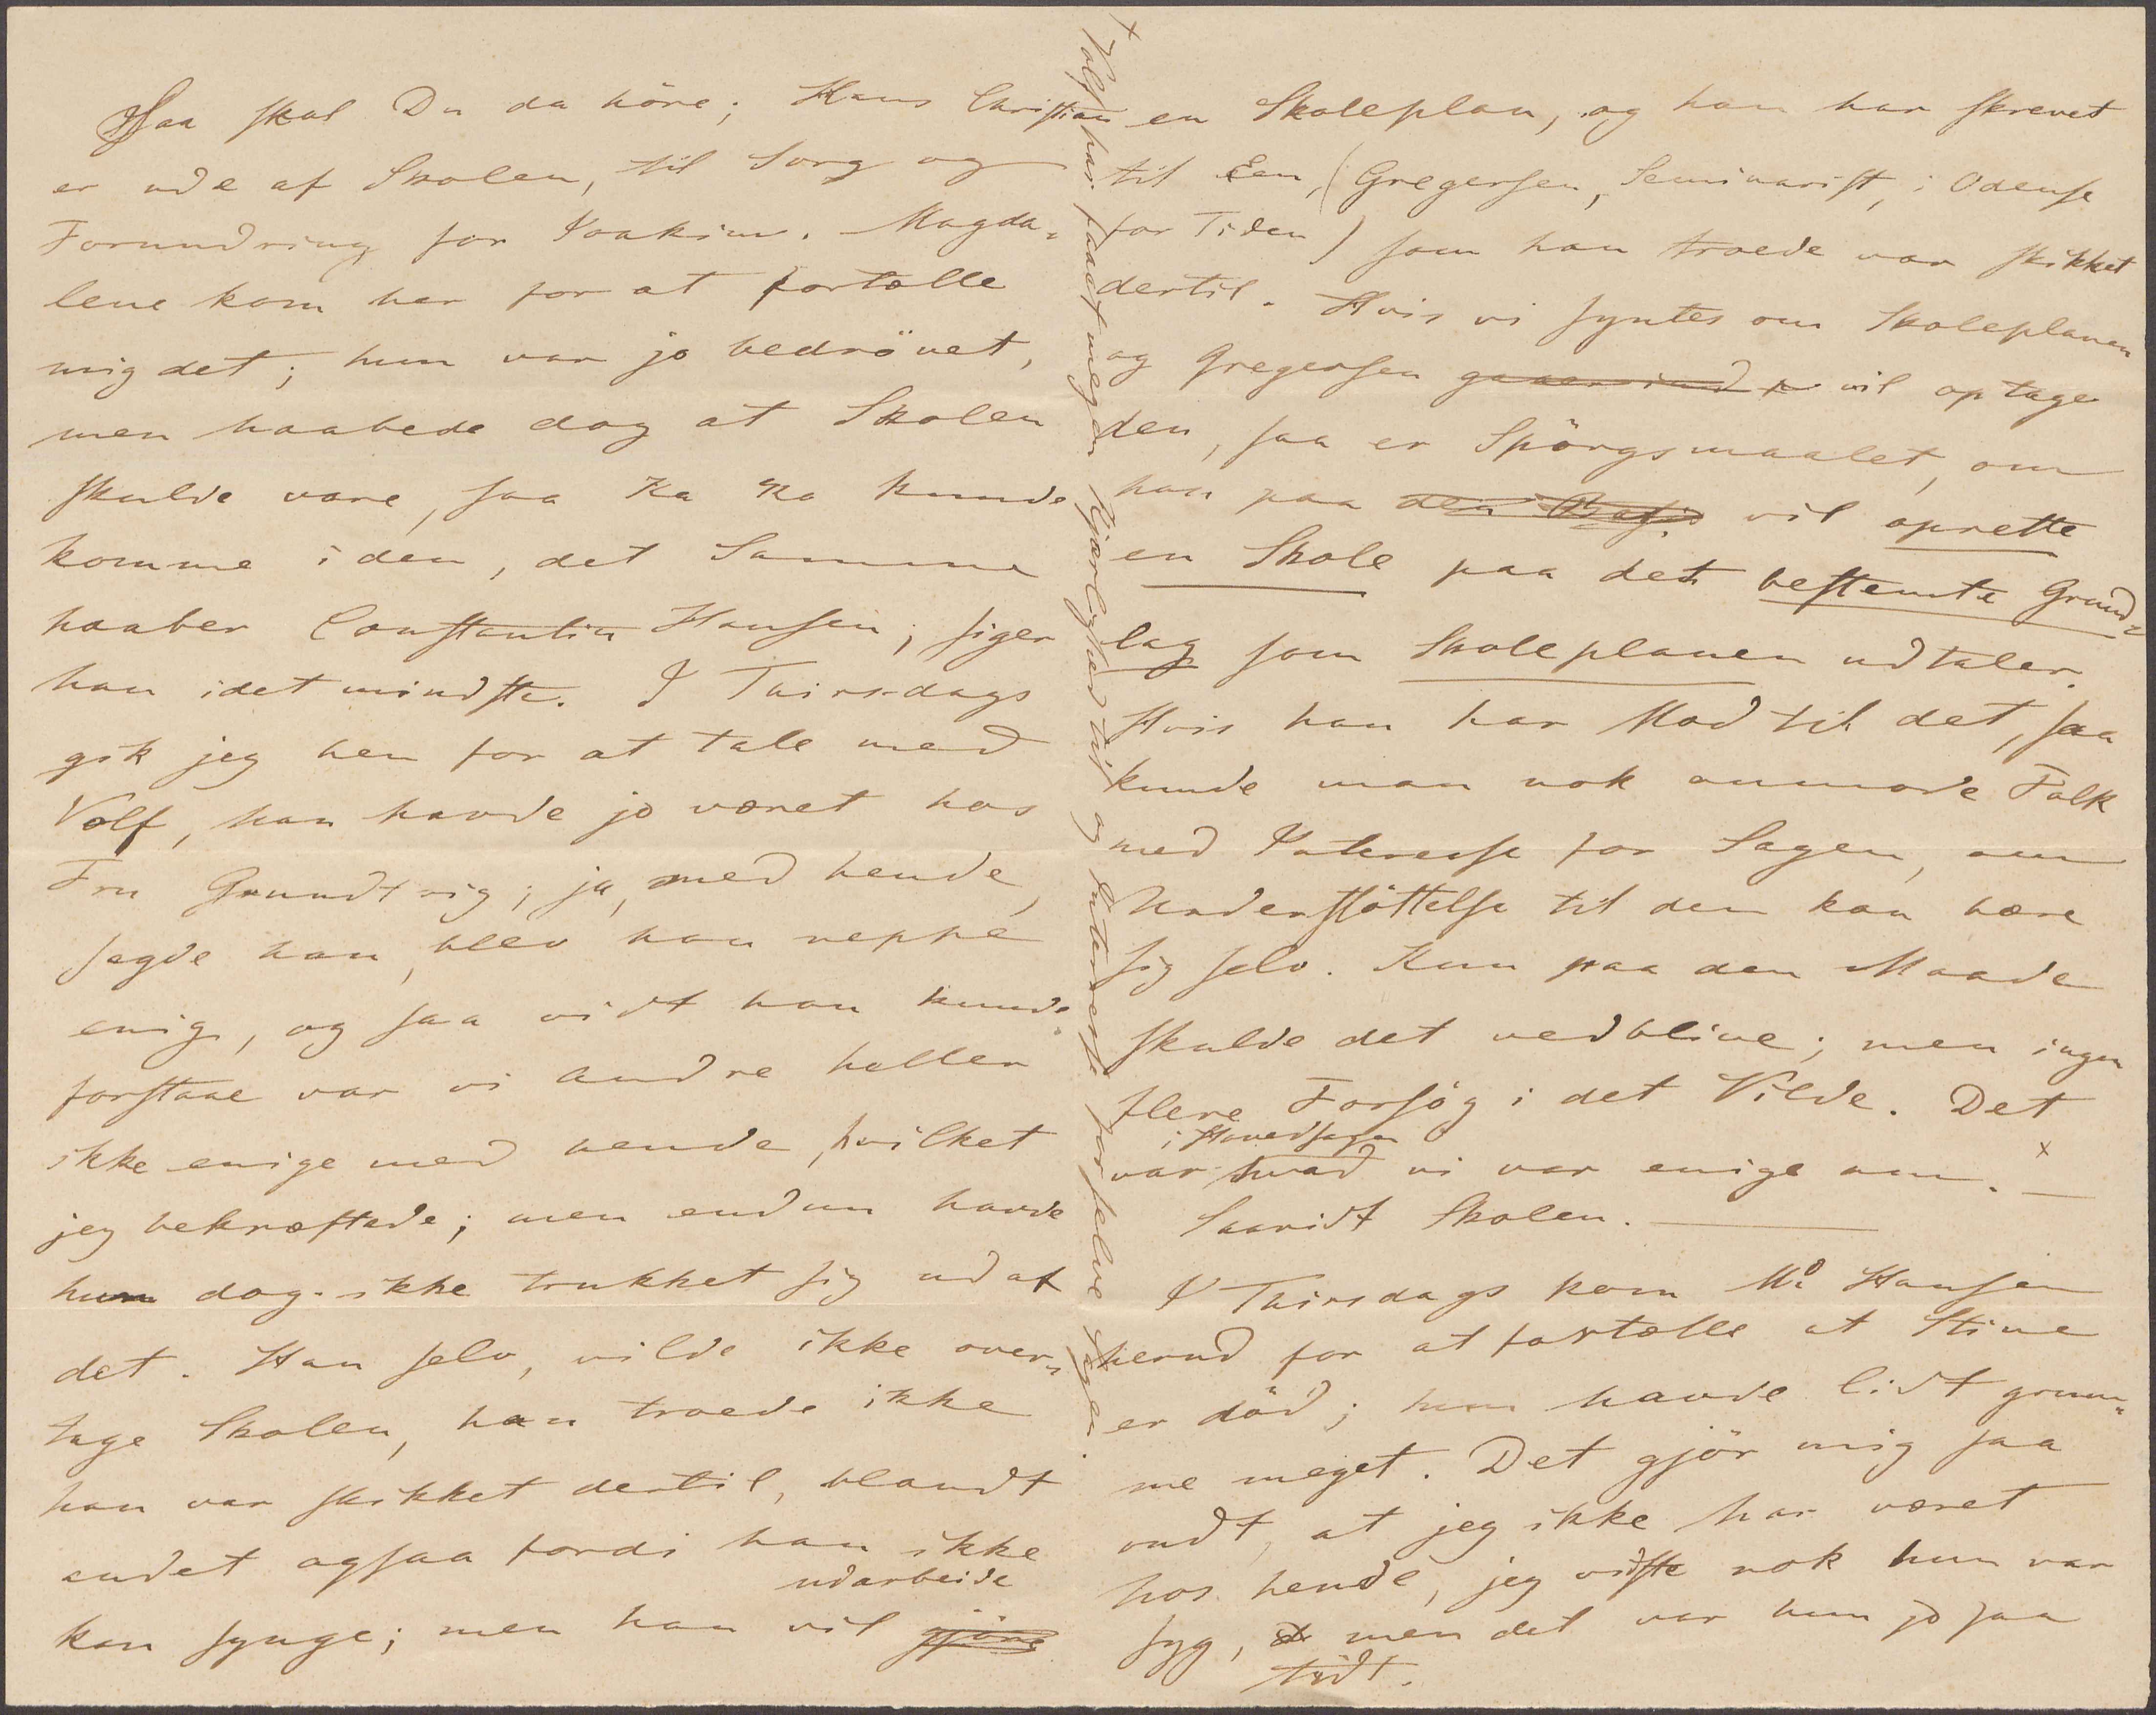 Saa skal Du da höre; Hans Christian
er ude af Skolen, til Sorg og
Forundring for Joakim. Magda-
lene kom her for at fortælle
mig det; hun var jo bedrövet,
men haabede dog at Skolen
skulde vare, saa Ka Ka kunde
komme i den, det Samme
haaber Constantin Hansen, siger
han idetmindste. I Tirsdags
gik jeg hen for at tale med
Volf, han havde jo været hos
Fru Grundtvig; ja, med hende,
sagde han, blev han neppe
enig, og saa vidt han kunde
forstaae var vi andre heller
ikke enige med hende, hvilket
jeg bekræftede; men endnu havde
hun dog ikke trukket sig ud af
det. Han selv, vilde ikke over-
tage Skolen, han troede ikke
han var skikket dertil, blandt
andet ogsaa fordi han ikke
udarbeide
kan synge; men han vil gjöre
en Skoleplan, og han har skrevet
til Een, (Gregersen, Seminarist, i Odense
for Tiden) som han troede var skikket
dertil. Hvis vi syntes om Skoleplanen
og Gregersen vil optage
den, saa er Spörgsmaalet, om
han paa den Basis vil oprette
en Skole paa det bestemte Grund-
lag som Skoleplanen udtaler.
Hvis han har Mod til det, saa
kunde man nok anmode Folk
med Interesse for Sagen, om
Understöttelse til den kan bære
sig selv. Kun paa den Maade
skulde det vedblive; men ingen
flere Forsög i det Vilde. Det
i Hovedsagen
var hvad vi var enige om. x —
Saavidt Skolen. —
I Tirsdags kom Md Hansen
herud for at fortælle at Stine
er död; hun havde lidt grum-
me meget. Det gjör mig saa
ondt, at jeg ikke har været
hos hende, jeg vidste nok hun var
syg, men det var hun jo saa
tidt.
x Volf har faaet megen Kjærlighed til og Interesse for selve Sagen.